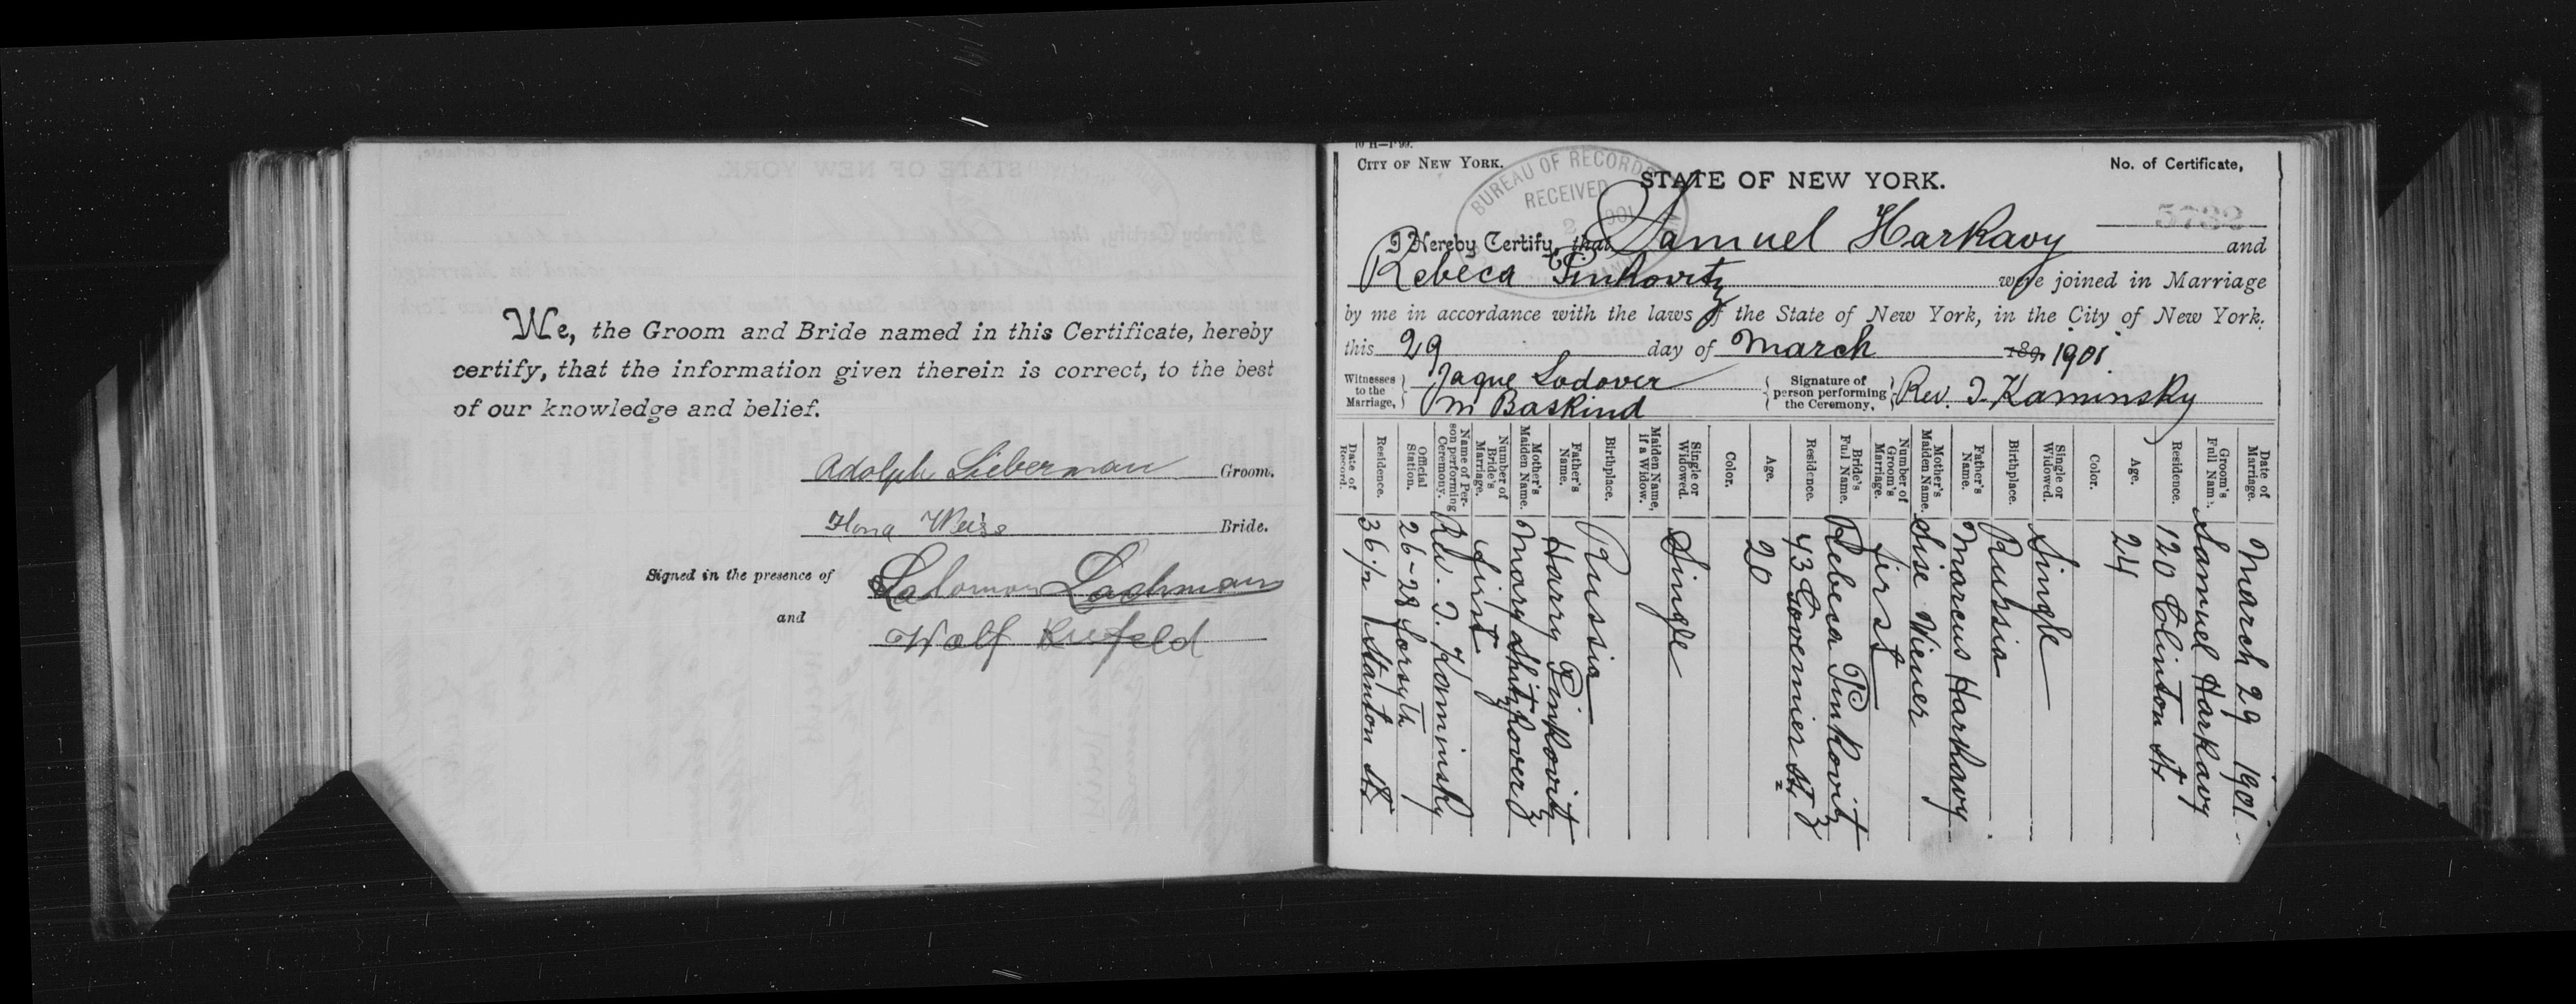 We, the Groom and Bride named in this Certificate, hereby
certify, that the information given therein is correct, to the best
of our knowledge and belief.
Adolph Lieberman Groom.
Ilona Weiss Bride.
Signed in the presence of Salomon Lachman
and
Wolf
10 H—1'99.
CITY OF NEW YORK.
No. of Certificate,
STATE OF NEW YORK.
BUREAU OF RECORDS
RECEIVED
I Hereby Certify, that Samuel Harkavy and
Rebeca Pinkovitz were joined in Marriage
by me in accordance with the laws of the State of New York, in the City of New York.
this 29 day of March 189 1901.
Witnesses to the Marriage, Jaque Lodover
M Baskind
Signature of person performing the Ceremony, Rev. I. Kaminsky
Date of Marriage. March 29 1901.
Groom's Full Name. Samuel Harkavy
Residence. 120 Clinton St.
Age. 24
Color.
Single or Widowed. Single
Birthplace. Russia
Father's Name. Marcus Harkavy
Mother's Maiden Name. Sise Wiener
Number of Groom's Marriage. first
Bride's Full Name. Rebeca Pinkovitz
Residence. 43 Governier St.
Age. 20
Color.
Single or Widowed. Single
Maiden Name, if a Widow.
Birthplace. Russia
Father's Name. Harry Pinkovitz
Mother's Maiden Name. Mary Shitkoverz
Number of Bride's Marriage. first
Name of Person performing Ceremony. Rev. I. Kaminsky
Official Station. 26-28 Forsyth
Residence. 36 1/2 Stanton St.
Date of Record.